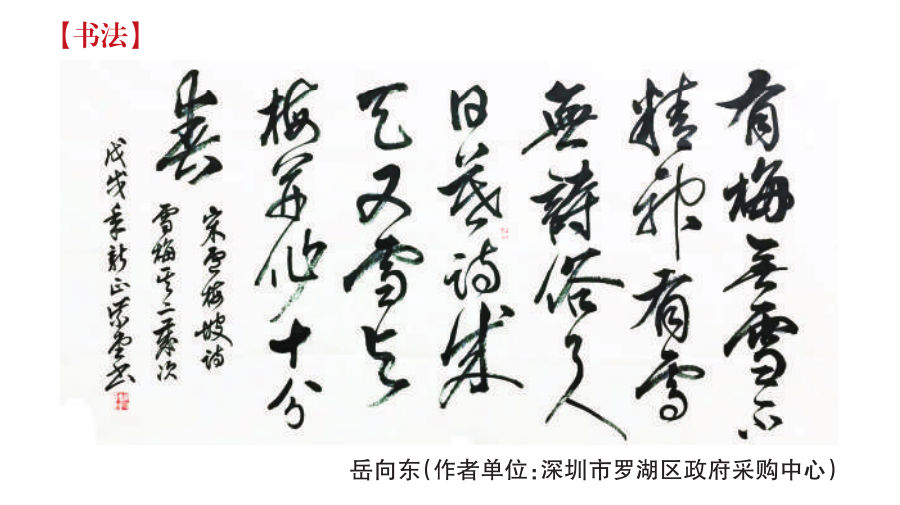 【书法】
有梅无雪不
精神有雪
無詩俗了人
日暮诗成
天又雪与
梅并作十分
春
宋卢梅坡诗
雪梅其二
戊戌年新正
岳向东(作者单位:深圳市罗湖区政府采购中心)